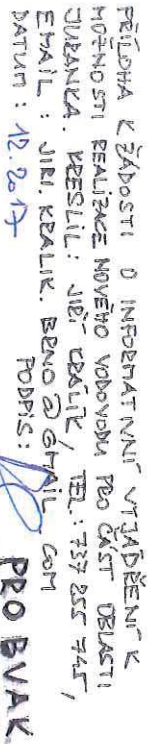 PŘÍLOHA K ŽÁDOSTI O INFORMATIVNÍ VYJÁDŘENÍ K
MOŽNOSTI REALIZACE NOVÉHO VODOVODU PRO ČÁST OBLASTI
JURANKA. KRESLIL: JIŘÍ KRÁLÍK TEL.: 737 255 745,
EMAIL: JIRI.KRALIK.BRNO@GMAIL.COM
DATUM: 12.2017 PODPIS: PRO BVAK